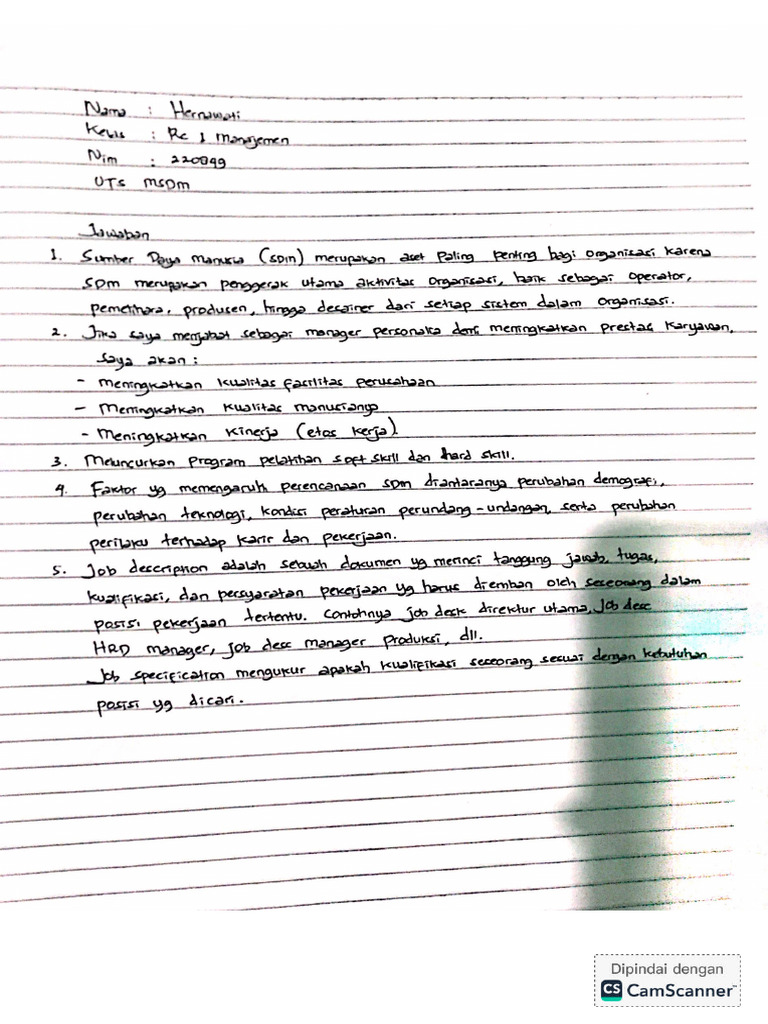 Nama : Hernawati
Kelas : Rc 1 Manajemen
Nim : 220849
UTS MSDM
Jawaban
1. Sumber Daya manusia (SDM) merupakan aset paling penting bagi organisasi karena
SDM merupakan penggerak utama aktivitas organisasi, baik sebagai operator,
pemelihara, produsen, hingga desainer dari setiap sistem dalam organisasi.
2. Jika saya menjabat sebagai manager personalia demi meningkatkan prestasi karyawan,
saya akan :
- meningkatkan kualitas fasilitas perusahaan
- Meningkatkan kualitas manusianya
- Meningkatkan kinerja (etos kerja).
3. Meluncurkan program pelatihan soft skill dan hard skill.
4. Faktor yg memengaruhi perencanaan SDM diantaranya perubahan demografi,
perubahan teknologi, kondisi peraturan perundang-undangan, serta perubahan
perilaku terhadap karir dan pekerjaan.
5. Job description adalah sebuah dokumen yg merinci tanggung jawab, tugas,
kualifikasi, dan persyaratan pekerjaan yg harus diemban oleh seseorang dalam
posisi pekerjaan tertentu. Contohnya job desk direktur utama, job desc
HRD manager, job desc manager produksi, dll.
Job specification mengukur apakah kualifikasi seseorang sesuai dengan kebutuhan
posisi yg dicari.
Dipindai dengan
CS CamScanner